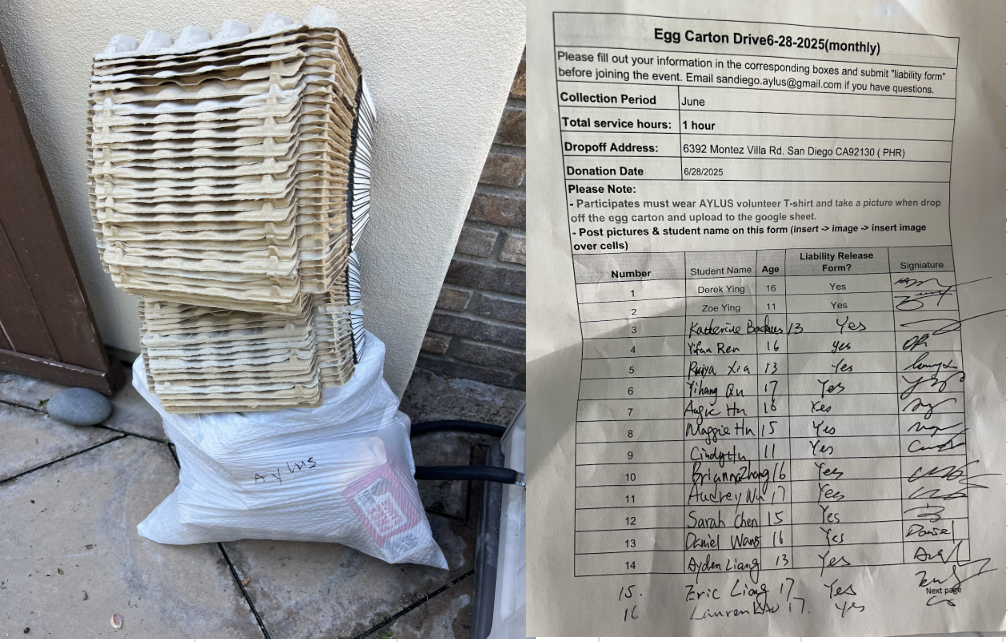 AYlUS
Egg Carton Drive6-28-2025(monthly)
Please fill out your information in the corresponding boxes and submit "liability form"
before joining the event. Email sandiego.aylus@gmail.com if you have questions.
Collection Period June
Total service hours: 1 hour
Dropoff Address: 6392 Montez Villa Rd. San Diego CA92130 ( PHR)
Donation Date 6/28/2025
Please Note:
- Participates must wear AYLUS volunteer T-shirt and take a picture when drop
off the egg carton and upload to the google sheet.
- Post pictures & student name on this form (insert -> image -> insert image
over cells)
Number Student Name Age Liability Release Form? Signiature
1 Derek Ying 16 Yes
2 Zoe Ying 11 Yes
3 Katherine 13 Yes
4 Yifan Ren 16 yes
5 Xia 13 Yes
6 Yihang Qu 17 Yes
7 Angie Hu 16 Yes
8 Maggie Hu 15 Yes
9 Cindy Hu 11 Yes
10 Brianna Zhang 16 Yes
11 Audrey Wu 17 Yes
12 Sarah Chen 15 Yes
13 Daniel Wang 16 Yes Daniel
14 Ayden Liang 13 Yes
15. Eric Liang 17 Yes
Next page
16 Lauren 17. yes